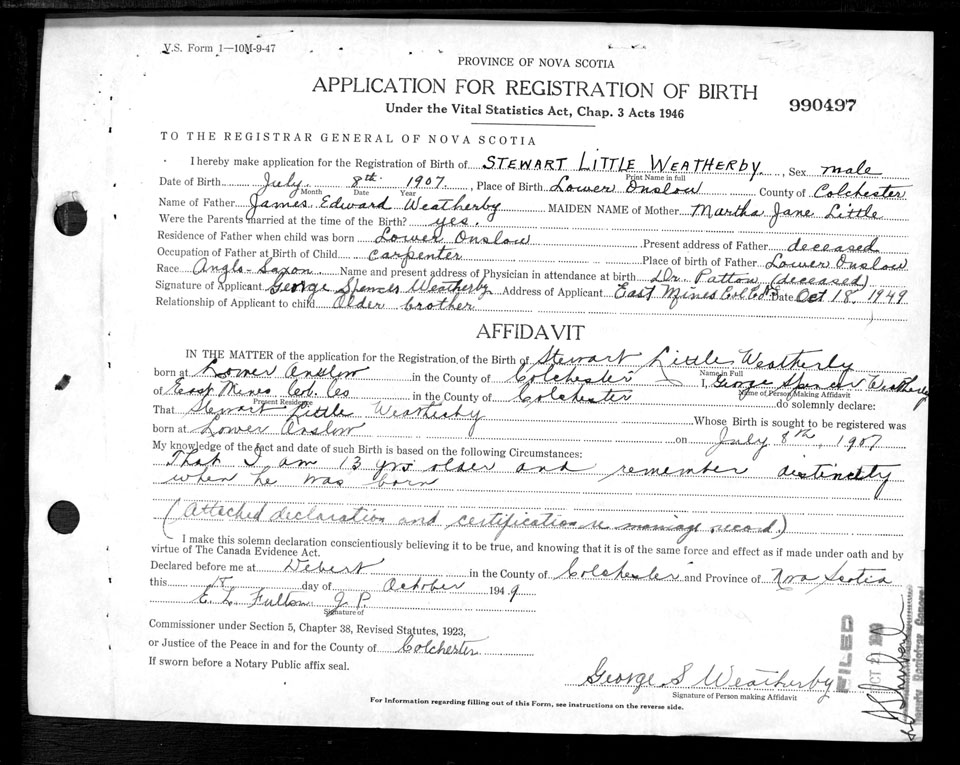 V.S. Form 1—10M-9-47
PROVINCE OF NOVA SCOTIA
APPLICATION FOR REGISTRATION OF BIRTH
990497
Under the Vital Statistics Act, Chap. 3 Acts 1946
TO THE REGISTRAR GENERAL OF NOVA SCOTIA
I hereby make application for the Registration of Birth of STEWART LITTLE WEATHERBY, Sex male
Print Name in full
Date of Birth July 8th 1907, Place of Birth Lower Onslow County of Colchester
Month Date Year
Name of Father James Edward Weatherby MAIDEN NAME of Mother Martha Jane Little
Were the Parents married at the time of the Birth? yes.
Residence of Father when child was born Lower Onslow Present address of Father deceased
Occupation of Father at Birth of Child carpenter Place of birth of Father Lower Onslow
Race Anglo-Saxon Name and present address of Physician in attendance at birth Dr. Patton (deceased)
Signature of Applicant George Spencer Weatherby Address of Applicant East Mines Col. Co. Date Oct 18, 1949
Relationship of Applicant to child Older brother
AFFIDAVIT
IN THE MATTER of the application for the Registration of the Birth of Stewart Little Weatherby
Name in Full
born at Lower Onslow in the County of Colchester I, George Spencer Weatherby
Name of Person Making Affidavit
of East Mines Col. Co in the County of Colchester do solemnly declare:
Present Residence
That Stewart Little Weatherby Whose Birth is sought to be registered was
born at Lower Onslow on July 8th, 1907
My knowledge of the fact and date of such Birth is based on the following Circumstances:
That I am 13 yrs older and remember distinctly
when he was born
(Attached declaration and certification re marriage record.)
I make this solemn declaration conscientiously believing it to be true, and knowing that it is of the same force and effect as if made under oath and by
virtue of The Canada Evidence Act.
Declared before me at Debert in the County of Colchester and Province of Nova Scotia
this day of October 1949
E. L. Fulton J.P.
Signature of
Commissioner under Section 5, Chapter 38, Revised Statutes, 1923,
or Justice of the Peace in and for the County of Colchester
If sworn before a Notary Public affix seal.
George S Weatherby
Signature of Person making Affidavit
For Information regarding filling out of this Form, see instructions on the reverse side.
FILED
OCT 21
Registrar General